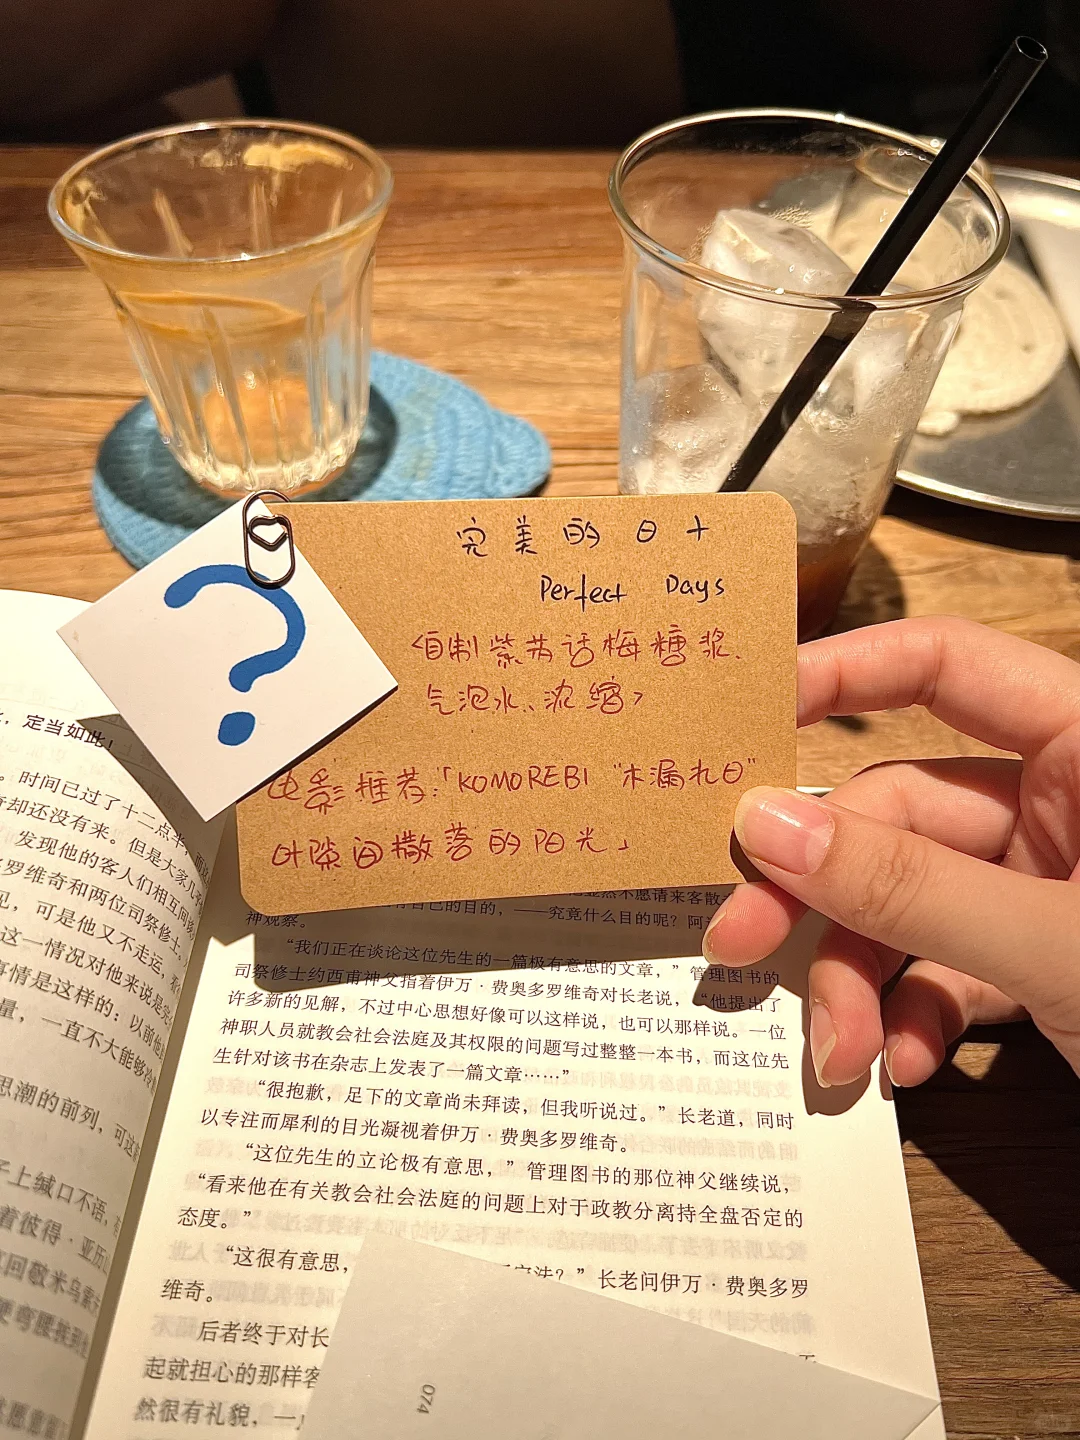 ?
完美的日十
Perfect Days
<自制紫苏话梅糖浆、
气泡水、浓缩>
电影推荐:「KOMOREBI "木漏れ日"
叶隙间撒落的阳光」
，定当如此！
。时间已过了十二点半，而
却还没有来。但是大家几乎
发现他的客人们相互间
罗维奇和两位司祭修士。
见，可是他又不走运，
这一情况对他来说是
事情是这样的：以前他
量，一直不大能够冷
思潮的前列，可这
子上缄口不语，
着彼得·亚历山
回敬米乌索
便弯腰找到
愿意
不愿请来客散
自己的目的，——究竟什么目的呢？阿
神观察。
“我们正在谈论这位先生的一篇极有意思的文章，”管理图书的
司祭修士约西甫神父指着伊万·费奥多罗维奇对长老说，“他提出了
许多新的见解，不过中心思想好像可以这样说，也可以那样说。一位
神职人员就教会社会法庭及其权限的问题写过整整一本书，而这位先
生针对该书在杂志上发表了一篇文章……”
“很抱歉，足下的文章尚未拜读，但我听说过。”长老道，同时
以专注而犀利的目光凝视着伊万·费奥多罗维奇。
“这位先生的立论极有意思，”管理图书的那位神父继续说，
“看来他在有关教会社会法庭的问题上对于政教分离持全盘否定的
态度。”
“这很有意思，
？”长老问伊万·费奥多罗
维奇。
后者终于对长
起就担心的那样客
然很有礼貌，一
074